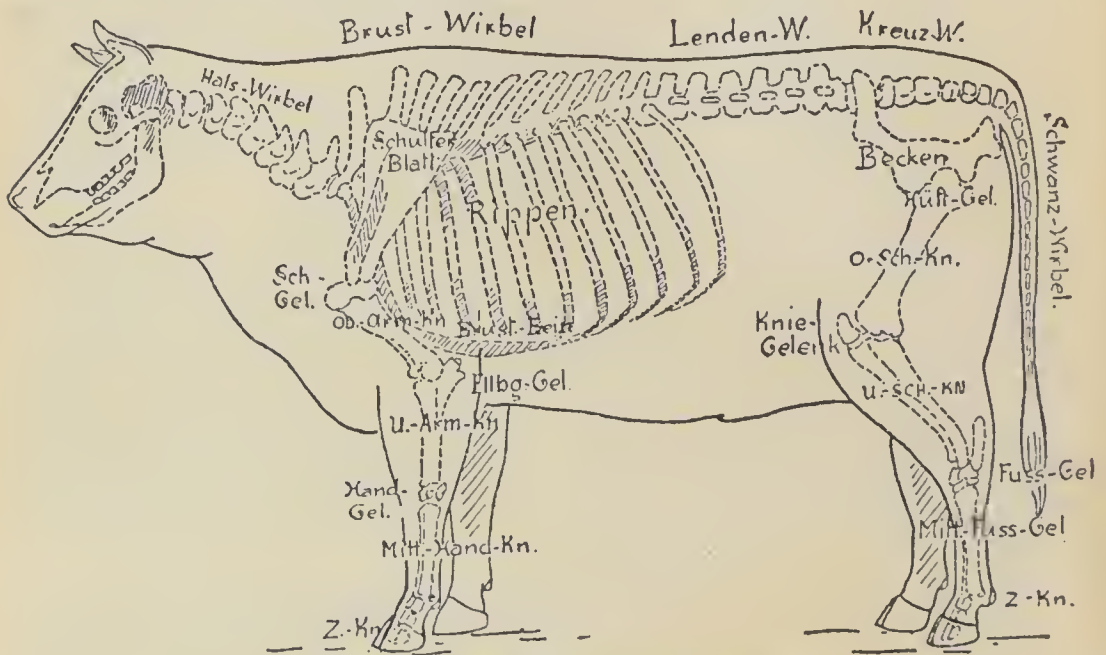 Brust-Wirbel
Lenden-W.
Kreuz-W.
Hals-Wirbel
Schulter
Blatt
Rippen.
Becken
Hüft-Gel.
Schwanz-Wirbel.
O.-Sch-Kn.
Sch-
Gel.
Ob.-Arm-Kn
Brust-Bein
Knie-
Gelenk
Ellbg-Gel.
U.-Sch.-Kn
U.-Arm-Kn
Fuss-Gel
Hand-
Gel.
Mitt.-Fuss-Gel
Mitt.-Hand-Kn.
Z-Kn.
Z.-Kn